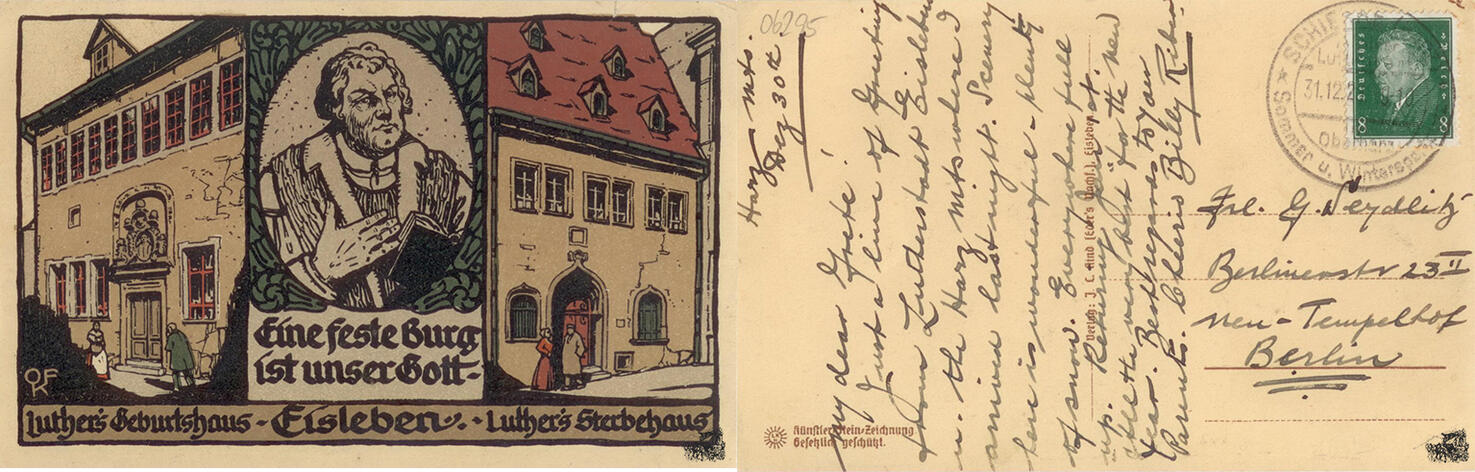 Eine feste Burg
ist unser Gott-
OFK
Luther's Geburtshaus - Eisleben - Luther's Sterbehaus
06295
Harz mts.
Dez 30th
My dear Grete!
Just a line of Greeting
from Lutherstadt Eisleben
u. the Harz mts where I
arrived last night. Scenery
here is wonderful - plenty
of snow. Everywhere full
up. Returning 1st.
All the very best for the new
Year. Best regards to your
Parents. Cheerio Billy
Verlag: J. C. Kind Eisleben
Künstler-Stein-Zeichnung
Gesetzlich geschützt.
SCHIE
31.12.2
Oberharz
Sommer u. Winter
Deutsches Reich
8 8
Frl. G. Seydlitz
Berlinerstr 23 II
Neu-Tempelhof
Berlin